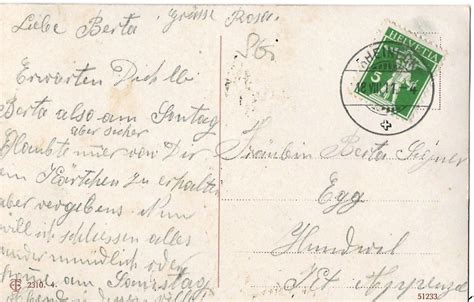 Liebe Berta
Grüsse Rosa
Erwarten Dich lb
Berta also am Sontag
aber sicher
Glaubte immer von Dir
ein Kärtchen zu erhalten
aber vergebens. Nun
will ich schliessen alles
andere mündlich oder
am Samstag
HELVETIA
5
18.VII.11
Fräulein Berta
Egg
Hundwil
Kt. Appenzell
2310. 4.
51233